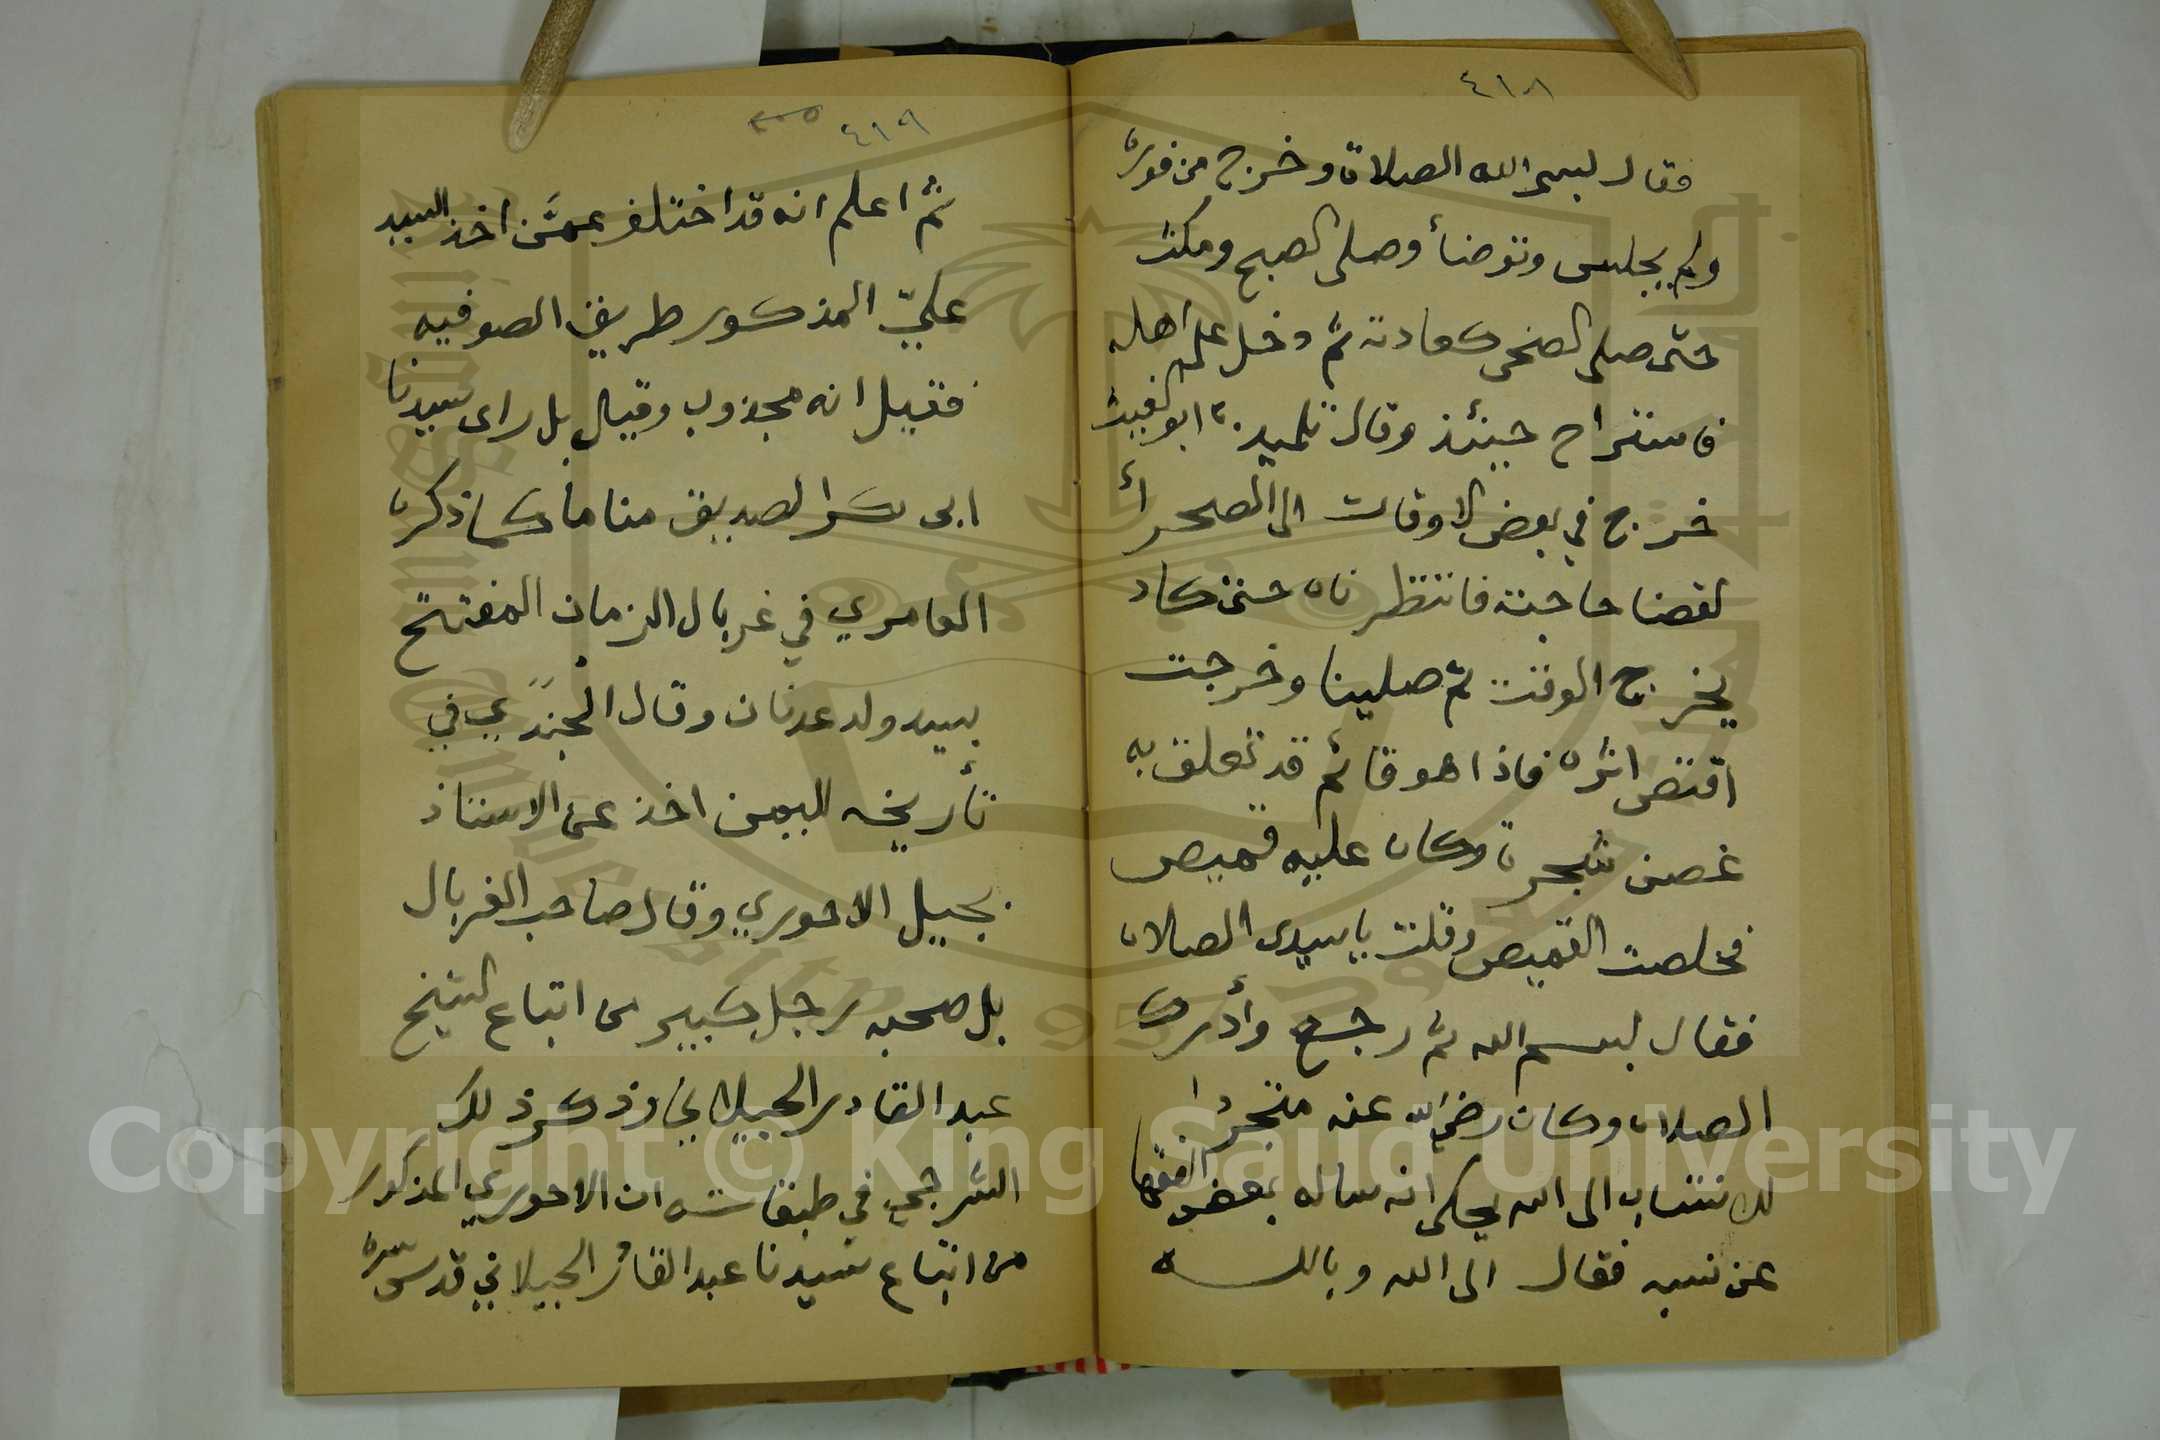 ٤١٨
فقال بسم الله الصلاة وخرج من فوره
ولم يجلس وتوضأ وصلى الصبح ومكث
حتى صلى الضحى كعادته ثم دخل على اهله
فاستراح حينئذ وقال تلميذه ابو الغيث
خرج في بعض الاوقات الى الصحرأ
لقضا حاجته فانتظرناه حتى كاد
يخرج الوقت ثم صلينا وخرجت
اقتص اثره فاذا هو قائم قد تعلق به
غصن شجرة وكان عليه قميص
فخلصت القميص وقلت يا سيدى الصلاه
فقال بسم الله ثم رجع وأدرك
الصلاه وكان رضي الله عنه متجردا
لانتساب الى الله يحكى انه ساله بعض الفقها
عن نسبه فقال الى الله وبالله
٤١٩
ثم اعلم انه قد اختلف عمَّن اخذ السيد
عليّ المذكور طريق الصوفيه
فقيل انه مجذوب وقيل بل راى سيدنا
ابى بكر الصديق مناما كما ذكره
العامري في غربال الزمان المفتتح
بسيد ولد عدنان وقال الجَنَدي في
تأريخه لليمن اخذ عن الاستاذ
بجيل الاحوري وقال صاحب الغربال
بل صحبه رجل كبير من اتباع الشيخ
عبد القادر الجيلاني وذكر ذلك
الشرجي في طبقاته ان الاحوري المذكور
من اتباع سيدنا عبد القادر الجيلاني قدس سره
Copyright © King Saud University